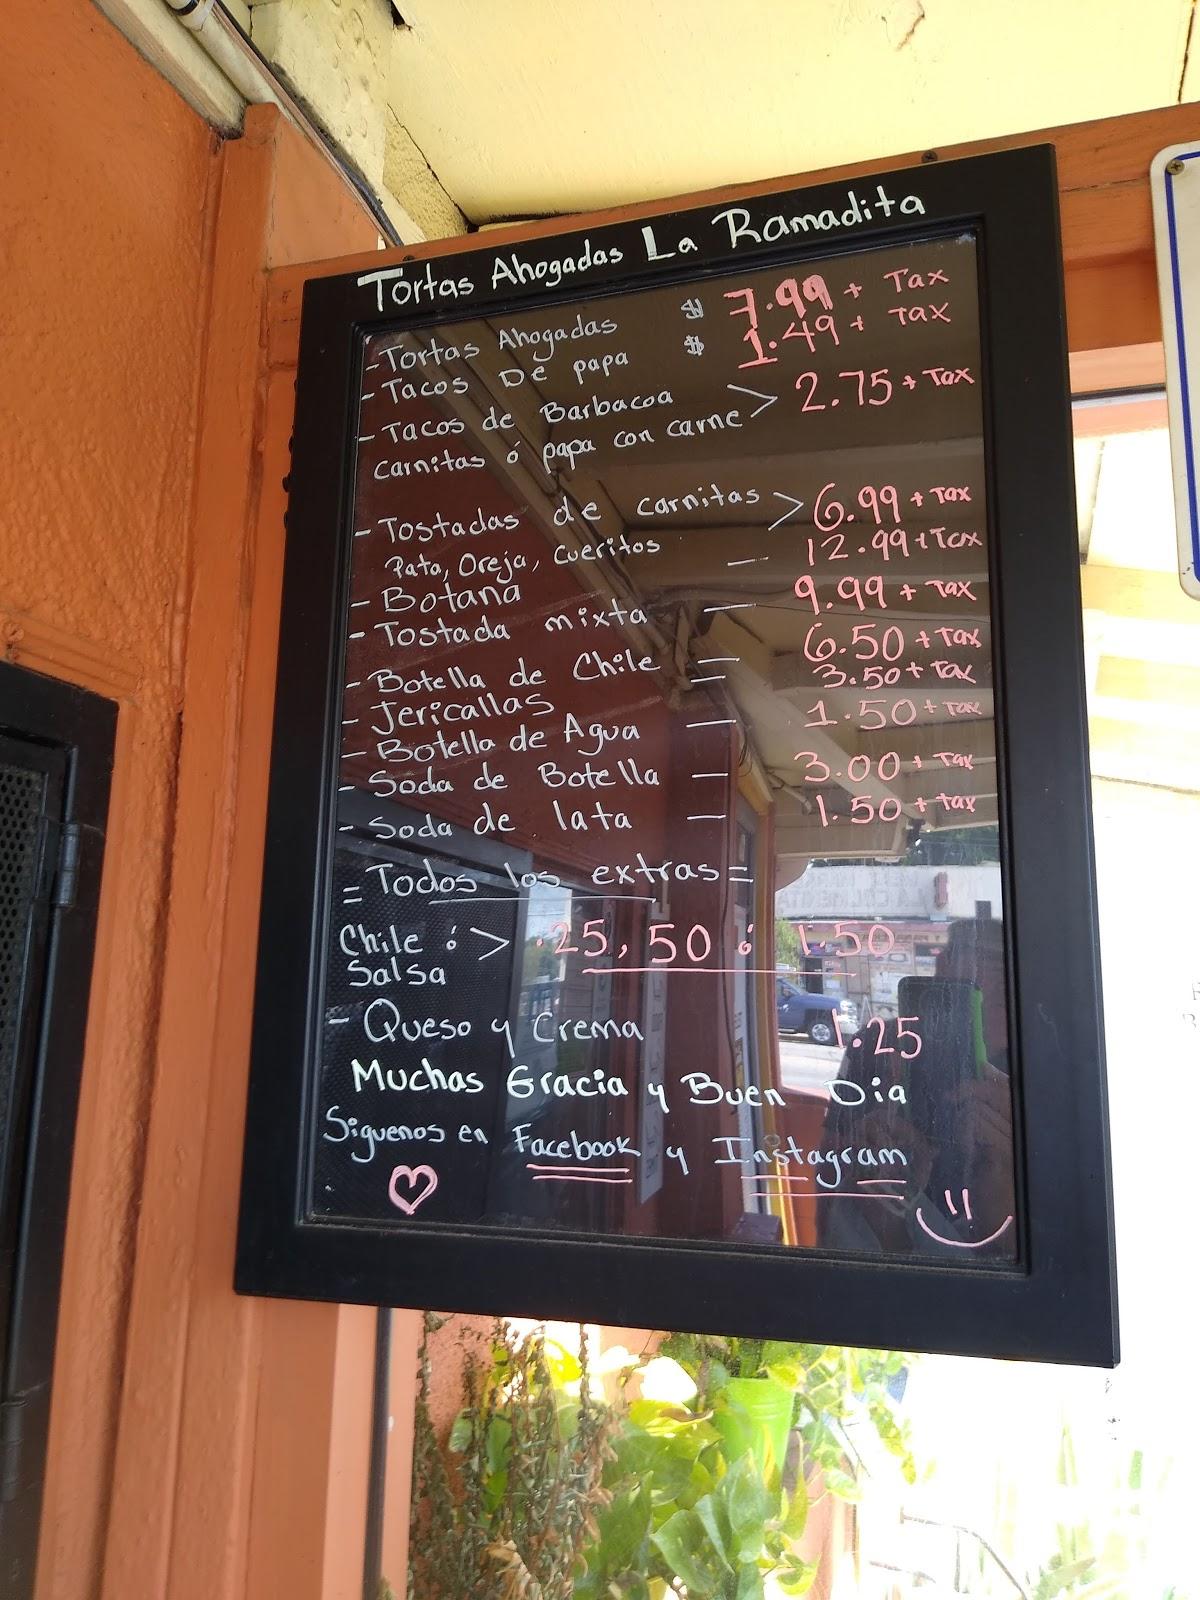 Tortas Ahogadas La Ramadita
-Tortas Ahogadas $ 7.99 + Tax
-Tacos De papa $ 1.49 + Tax
-Tacos de Barbacoa > 2.75 + Tax
Carnitas ó papa con carne
-Tostadas de carnitas > 6.99 + Tax
Pata, Oreja, Cueritos
-Botana — 12.99 + Tax
-Tostada mixta — 9.99 + Tax
-Botella de Chile — 6.50 + Tax
-Jericallas — 3.50 + Tax
-Botella de Agua — 1.50 + Tax
-Soda de Botella — 3.00 + Tax
-Soda de lata — 1.50 + Tax
= Todos los extras =
Chile ó > .25, 50 ó 1.50
Salsa
- Queso y Crema 1.25
Muchas Gracia y Buen Dia
Siguenos en Facebook y Instagram